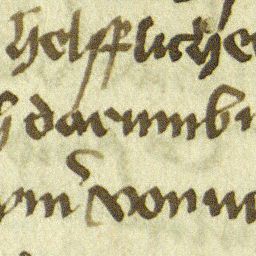 helffliche
h darumb
ym vonn